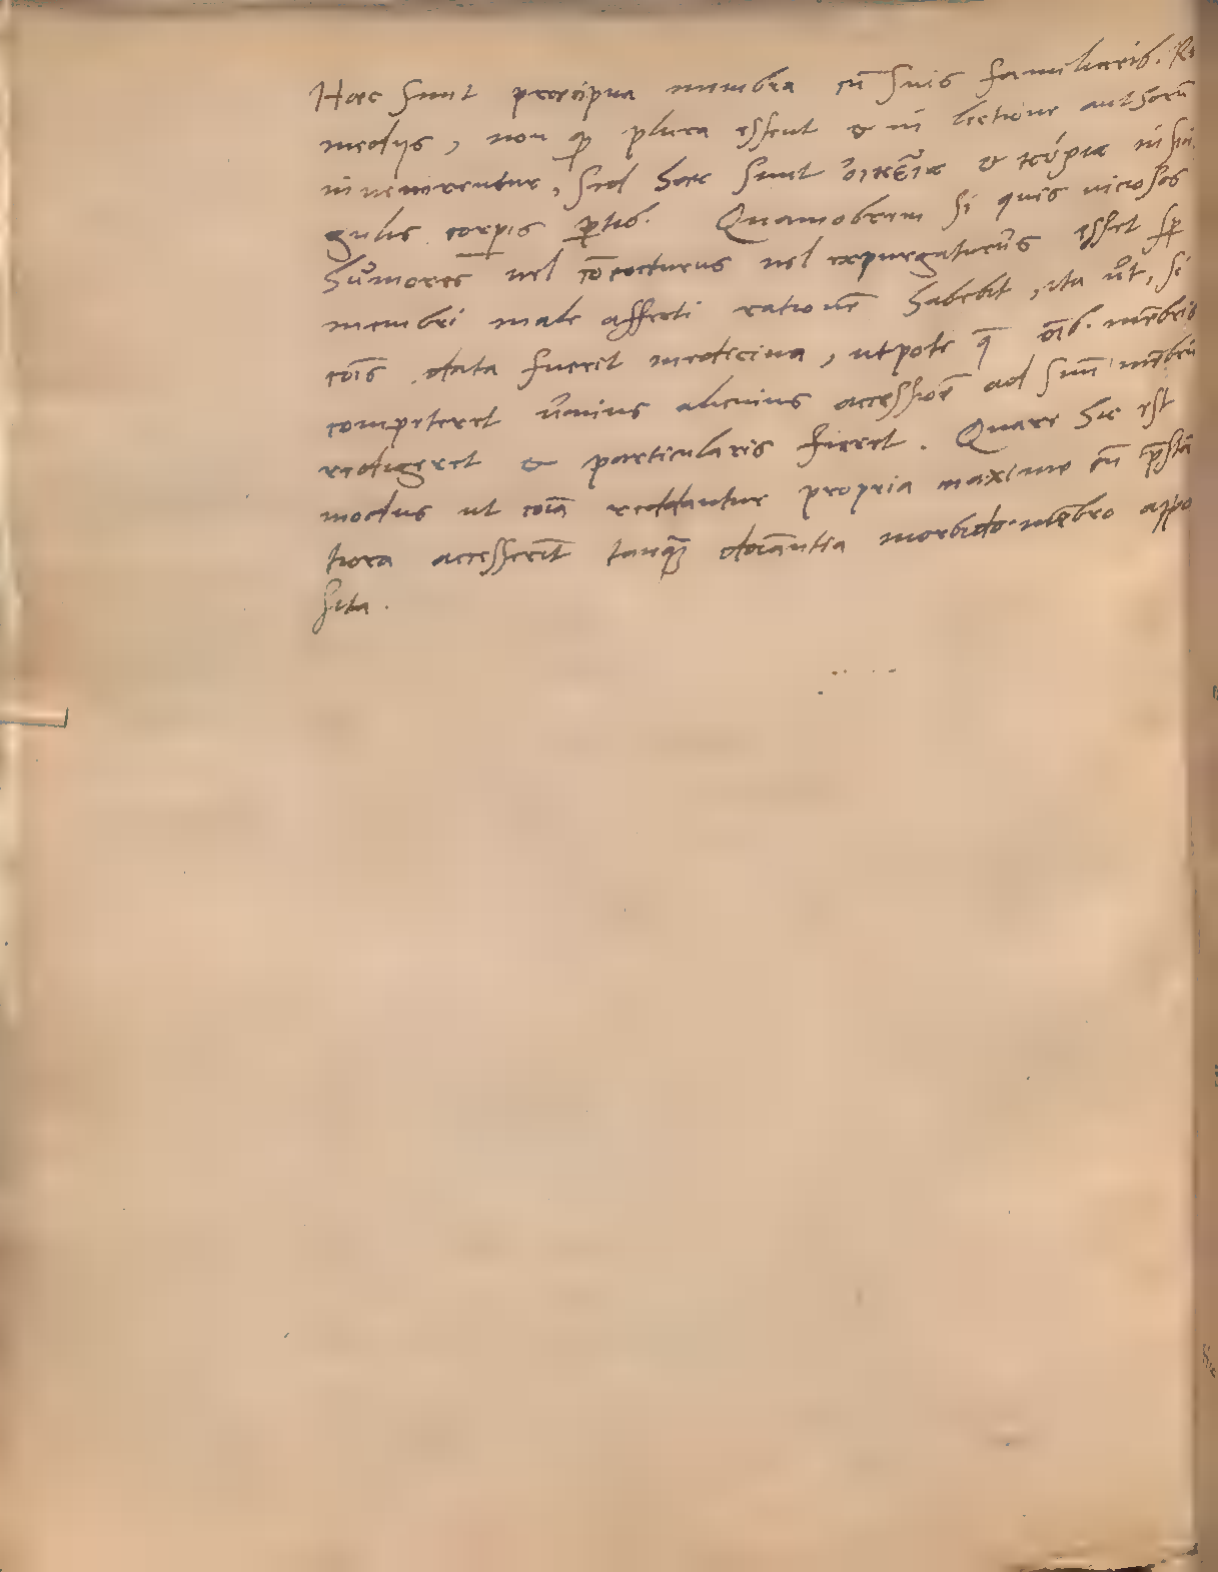 Haec sunt praecipua membra cū suis familiarib. Re
medijs, non qͫ plura essent & in lectione authorū
invenirentur, sed haec sunt οἰκεῖα & κύρια in sin
gulis corpis ptib. Quamobrem si quis viciosos
humores vel cōcocturus vel expurgaturus esset sp
membri male affecti rationē habebit, ita ut, si
cōis data fuerit medicina, utpote q̄ oīb. mēbris
competeret unius alicuius accessiōe ad suū mēbrū
redigeret & particularis fieret. Quare hic est
modus ut cōia reddantur propria maxime cū p̄stā
tiora accesserīt tanq̄ dōiantia morbido mēbro appo
sita.